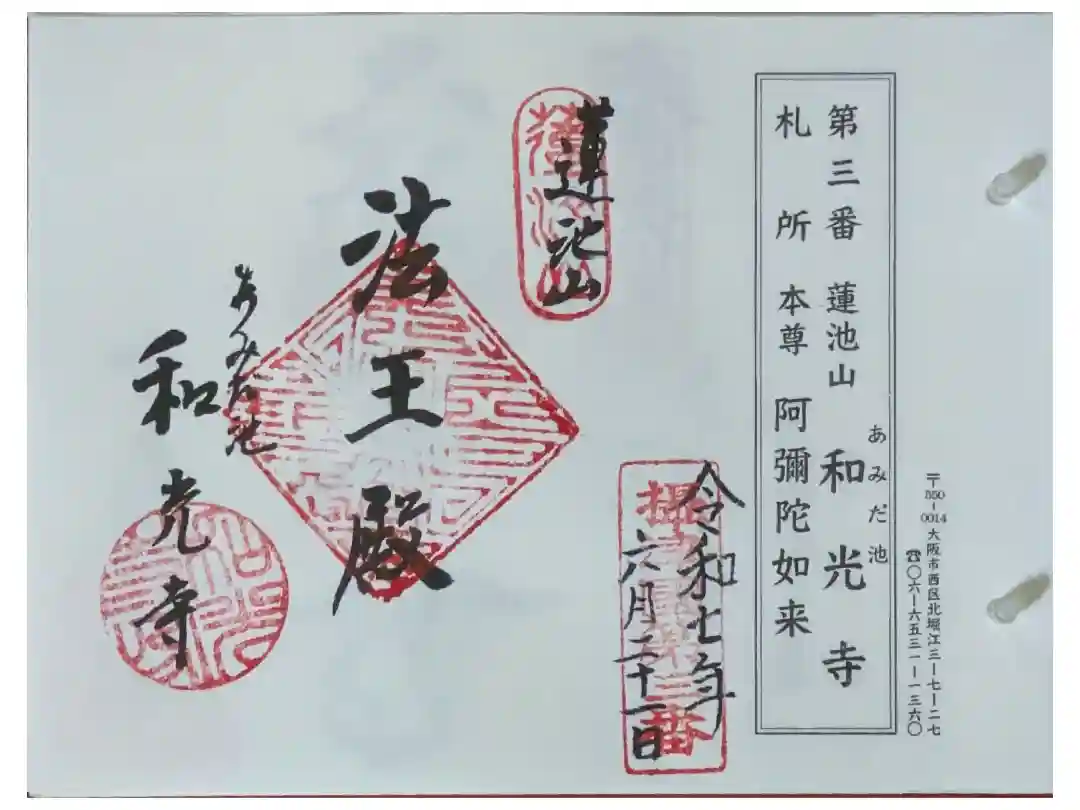 〒550-0014 大阪市西区北堀江三-七-二七
☎〇六-六五三一-一三六〇
あみだ池
第三番 蓮池山 和光寺
札所 本尊 阿彌陀如来
令和七年
六月二十一日
蓮池山
法王殿
あみだ池
和光寺